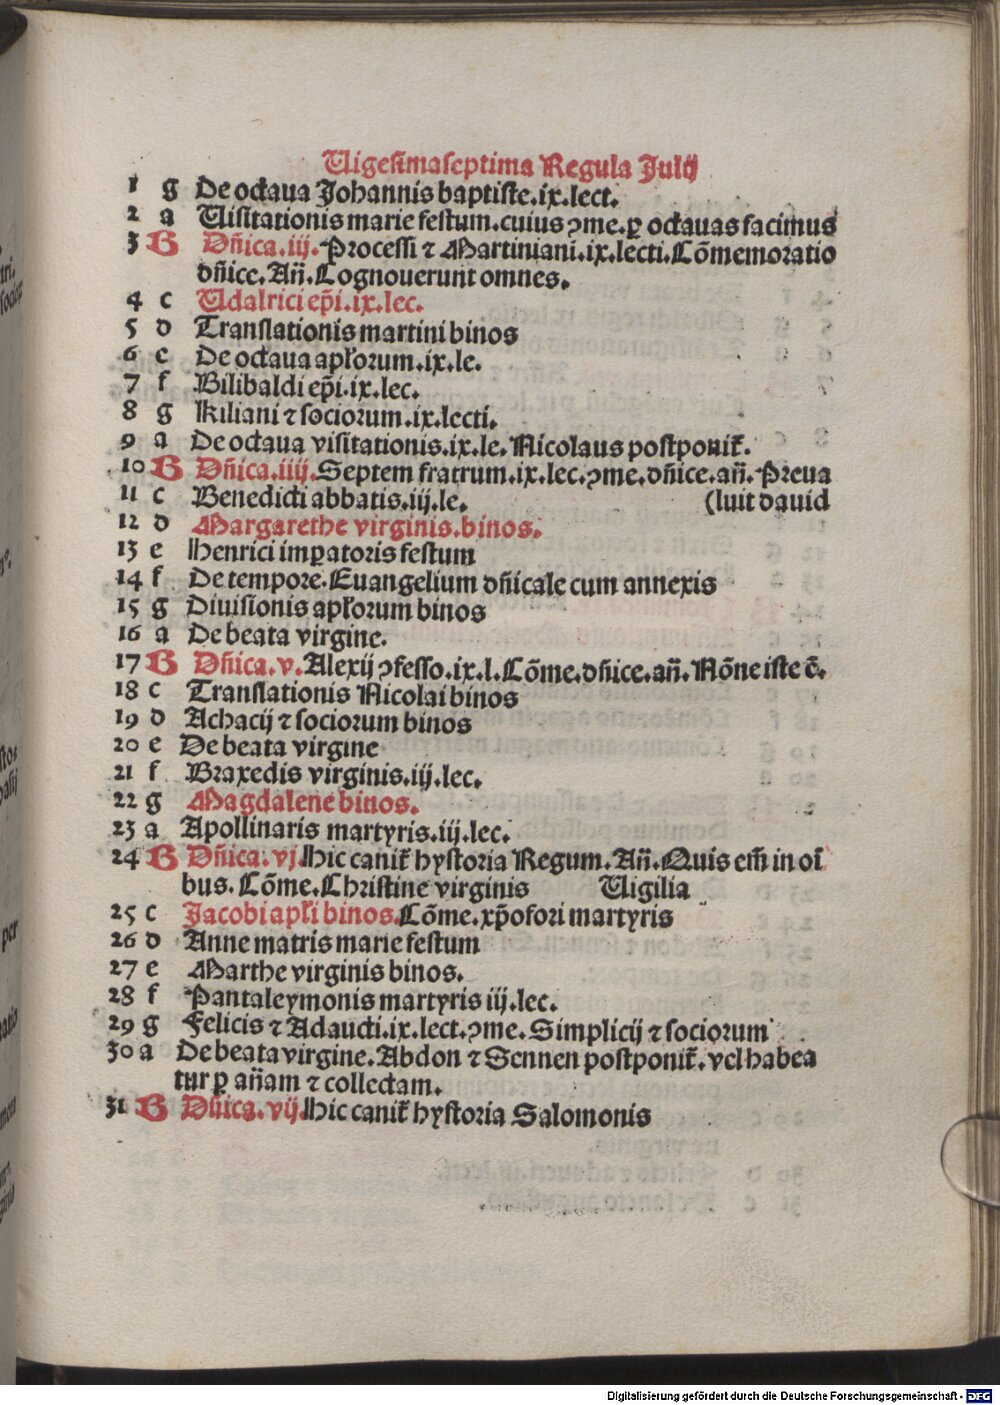 Uigesimaseptima Regula Julij
1 g De octaua Johannis baptiste.ix.lect.
2 a Uisitationis marie festum.cuius ꝯme.ꝑ octauas facimus
3 B Dñica.iij.Processi ⁊ Martiniani.ix.lecti.Cõmemoratio
dñice.Añ.Cognouerunt omnes.
4 c Udalrici ep̃i.ix.lec.
5 d Translationis martini binos
6 e De octaua apl'orum.ix.le.
7 f Bilibaldi ep̃i.ix.lec.
8 g Kiliani ⁊ sociorum.ix.lecti.
9 a De octaua visitationis.ix.le.Nicolaus postponit᷑.
10 B Dñica.iiij.Septem fratrum.ix.lec.ꝯme.dñice.añ.Preua
11 c Benedicti abbatis.iij.le. (luit dauid
12 d Margarethe virginis.binos.
13 e Henrici imꝑatoris festum
14 f De tempore.Euangelium dñicale cum annexis
15 g Diuisionis apl'orum binos
16 a De beata virgine.
17 B Dñica.v.Alexij ꝯfesso.ix.l.Cõme.dñice.añ.Nõne iste ē.
18 c Translationis Nicolai binos
19 d Achacij ⁊ sociorum binos
20 e De beata virgine
21 f Braxedis virginis.iij.lec.
22 g Magdalene binos.
23 a Apollinaris martyris.iij.lec.
24 B Dñica.vj.Hic canit᷑ hystoria Regum.Añ.Quis em̃ in oı̃
bus.Cõme.Christine virginis Uigilia
25 c Jacobi apl'i binos.Cõme.xp̃ofori martyris
26 d Anne matris marie festum
27 e Marthe virginis binos.
28 f Pantaleymonis martyris iij.lec.
29 g Felicis ⁊ Adaucti.ix.lect.ꝯme.Simplicij ⁊ sociorum
30 a De beata virgine.Abdon ⁊ Sennen postponit᷑.vel habea
tur ꝑ añam ⁊ collectam.
31 B Dñica.vij.Hic canit᷑ hystoria Salomonis
Digitalisierung gefördert durch die Deutsche Forschungsgemeinschaft - DFG